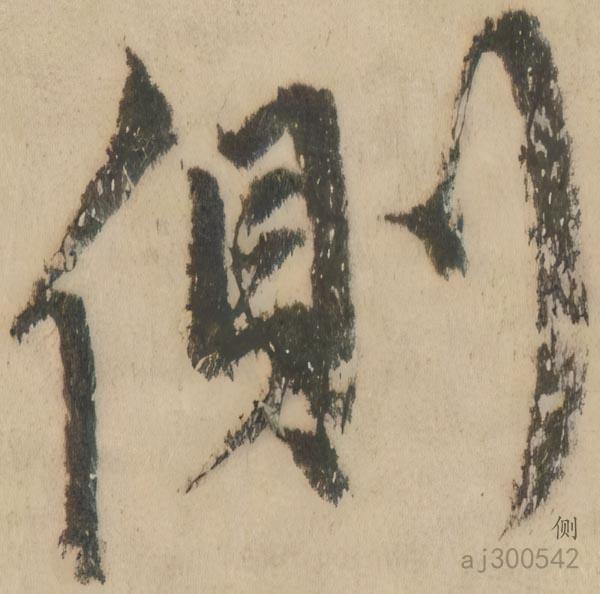 側
侧
aj300542